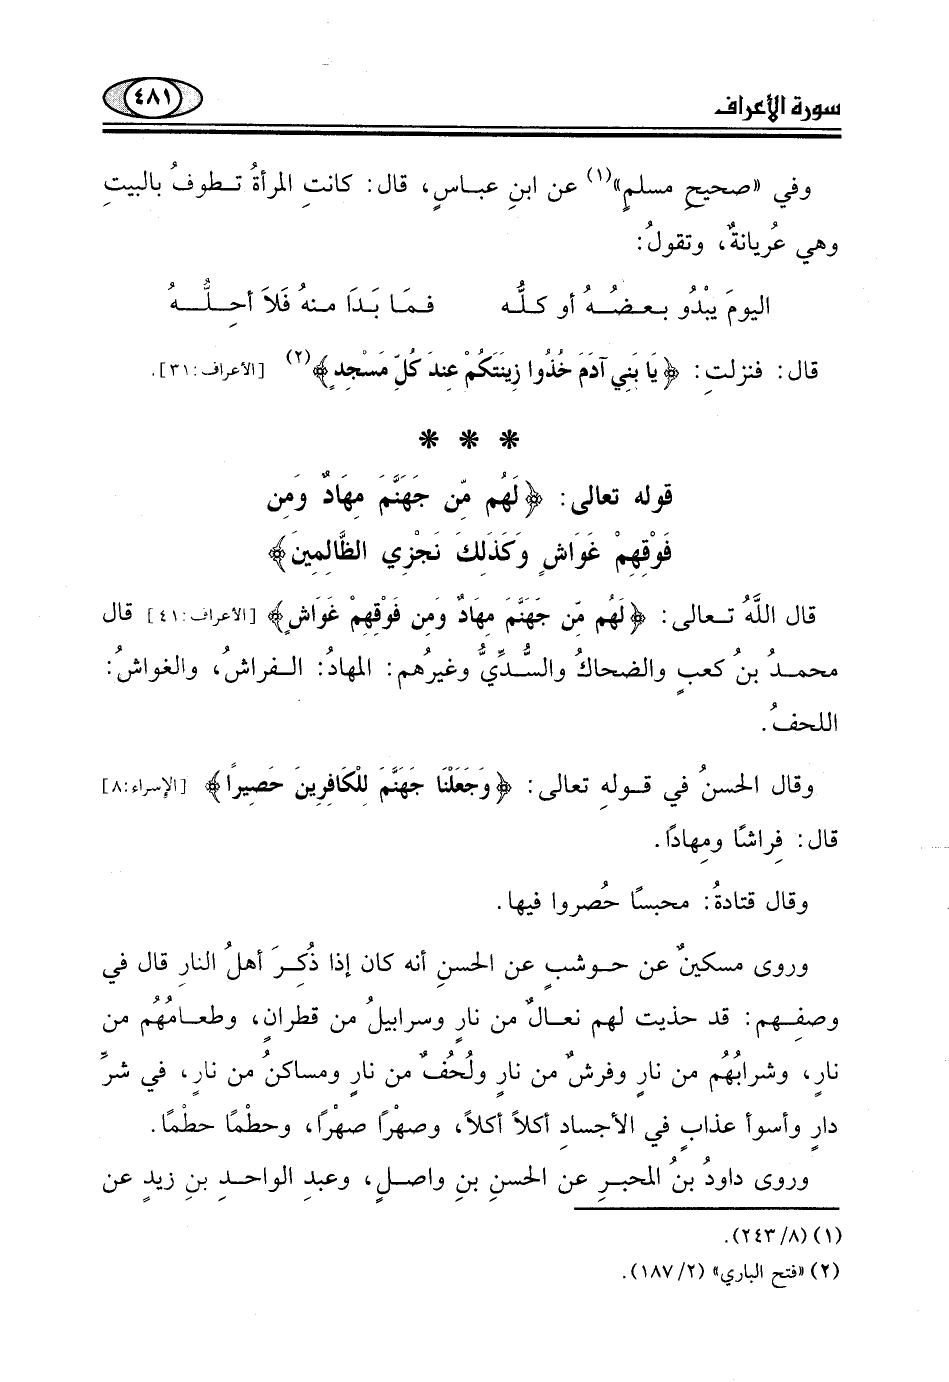 سورة الأعراف ٤٨١
وفي «صحيحِ مسلمٍ»(١) عن ابنِ عباسٍ، قال: كانتِ المرأةُ تـطوفُ بالبيتِ
وهي عُريانةٌ، وتقولُ:
اليومَ يبْدُو بـعضُـهُ أو كـلُّه فـمَـا بَـدَا مـنهُ فَلاَ أحِلُّـهُ
قال: فنزلتِ: ﴿يَا بَنِي آدَمَ خُذُوا زِينَتَكُمْ عِندَ كُلِّ مَسْجِدٍ﴾(٢) [الأعراف:٣١].
* * *
قوله تعالى: ﴿لَهُم مِّن جَهَنَّمَ مِهَادٌ وَمِن
فَوْقِهِمْ غَوَاشٍ وَكَذَلِكَ نَجْزِي الظَّالِمِينَ﴾
قال اللَّهُ تـعالى: ﴿لَهُم مِّن جَهَنَّمَ مِهَادٌ وَمِن فَوْقِهِمْ غَوَاشٍ﴾ [الأعراف:٤١] قال
محمـدُ بنُ كعبٍ والضحاكُ والسُّدِّيُّ وغيرُهم: المهادُ: الـفراشُ، والغواشُ:
اللحفُ.
وقال الحسنُ في قـولِه تعالى: ﴿وَجَعَلْنَا جَهَنَّمَ لِلْكَافِرِينَ حَصِيرًا﴾ [الإسراء:٨]
قال: فِراشًا ومِهادًا.
وقال قتادةُ: محبسًا حُصروا فيها.
وروى مسكينٌ عن حـوشبٍ عن الحسنِ أنه كان إذا ذُكِـرَ أهلُ النارِ قال في
وصفِـهم: قد حذيت لهم نعـالٌ من نارٍ وسرابيلُ من قطرانٍ، وطعامُهُم من
نارٍ، وشرابُهُم من نارٍ وفرشٌ من نارٍ ولُحُفٌ من نارٍ ومساكنُ من نارٍ، في شرِّ
دارٍ وأسوأ عذابٍ في الأجسادِ أكلاً أكلاً، وصهْرًا صهْرًا، وحطْمًا حطْمًا.
وروى داودُ بنُ المحبـرِ عن الحسنِ بنِ واصـلٍ، وعبدِ الواحـدِ بنِ زيدٍ عن
(١) (٨/ ٢٤٣).
(٢) «فتح الباري» (٢/ ١٨٧).